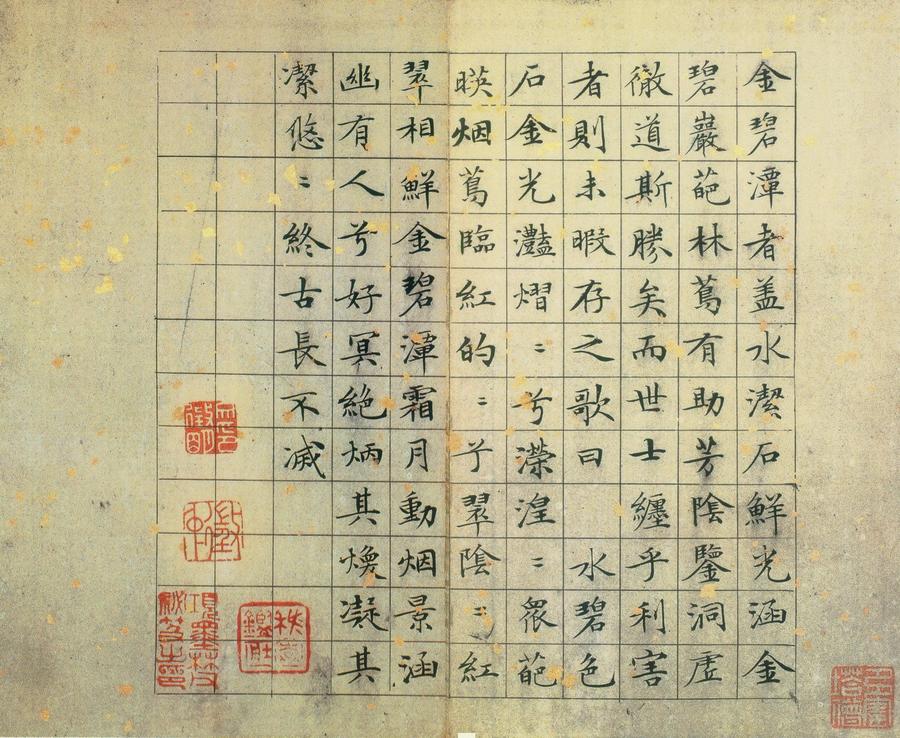 金碧潭者盖水潔石鮮光涵金
碧巖葩林蔦有助芳陰鑒洞虛
徹道斯勝矣而世士纏乎利害
者則未暇存之歌曰 水碧色
石金光灩熠〻兮濴湟〻衆葩
暎烟蔦臨紅的〻兮翠陰〻紅
翠相鮮金碧潭霜月動烟景涵
幽有人兮好冥絕炳其煥凝其
潔悠〻終古長不滅